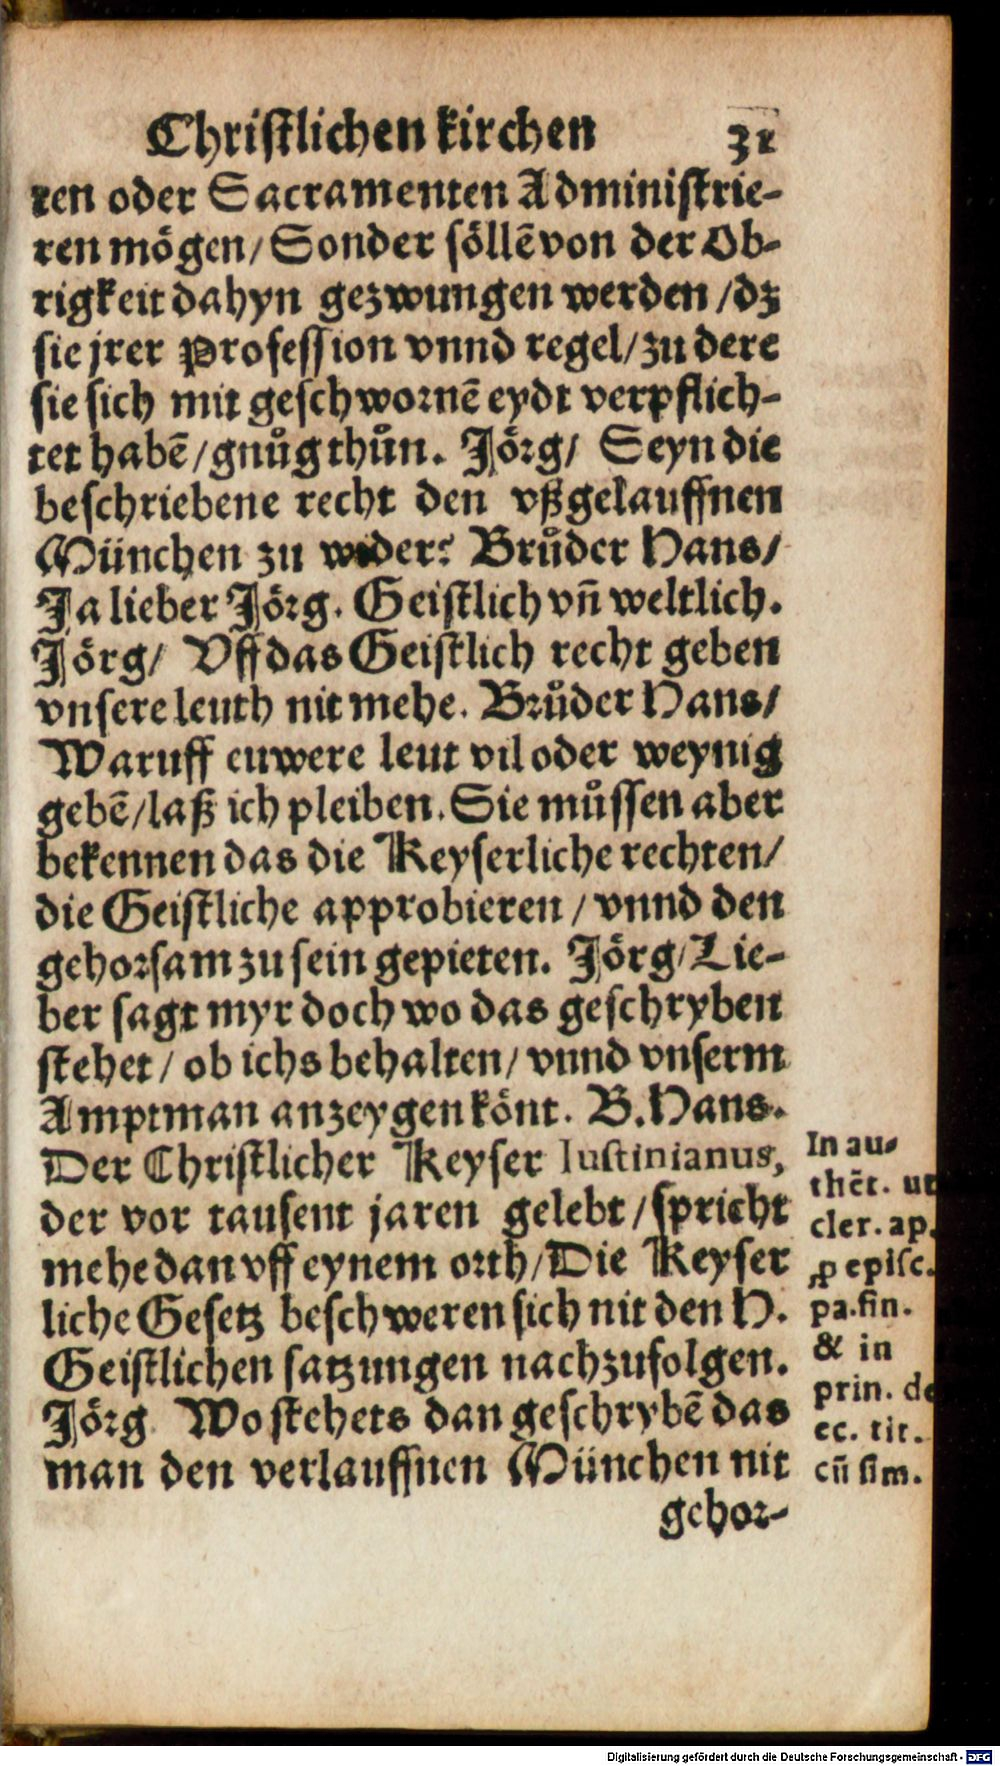 Christlichen kirchen 31
ten oder Sacramenten Administrie-
ren mögen/ Sonder söllẽ von der Ob-
rigkeit dahyn gezwungen werden/ dz
sie jrer Profession vnnd regel/ zu dere
sie sich mit geschwornẽ eydt verpflich-
tet habẽ/ gnůg thůn. Jörg/ Seyn die
beschriebene recht den vßgelauffnen
München zu wider? Brůder Hans/
Ja lieber Jörg. Geistlich vñ weltlich.
Jörg/ Vff das Geistlich recht geben
vnsere leuth nit mehe. Brůder Hans/
Waruff euwere leut vil oder weynig
gebẽ/ laß ich pleiben. Sie můssen aber
bekennen das die Keyserliche rechten/
die Geistliche approbieren/ vnnd den
gehorsam zu sein gepieten. Jörg/ Lie-
ber sagt myr doch wo das geschryben
stehet/ ob ichs behalten/ vnnd vnserm
Amptman anzeygen könt. B. Hans.
Der Christlicher Keyser Iustinianus,
der vor tausent jaren gelebt/ spricht
mehe dan vff eynem orth/ Die Keyser
liche Gesetz beschweren sich nit den H.
Geistlichen satzungen nachzufolgen.
Jörg Wo stehets dan geschrybẽ das
man den verlauffnen München nit
gehor-
In au-
thẽt. ut
cler. ap.
ꝓ episc.
pa. fin.
& in
prin. de
ec. tit.
cũ sim.
Digitalisierung gefördert durch die Deutsche Forschungsgemeinschaft - DFG